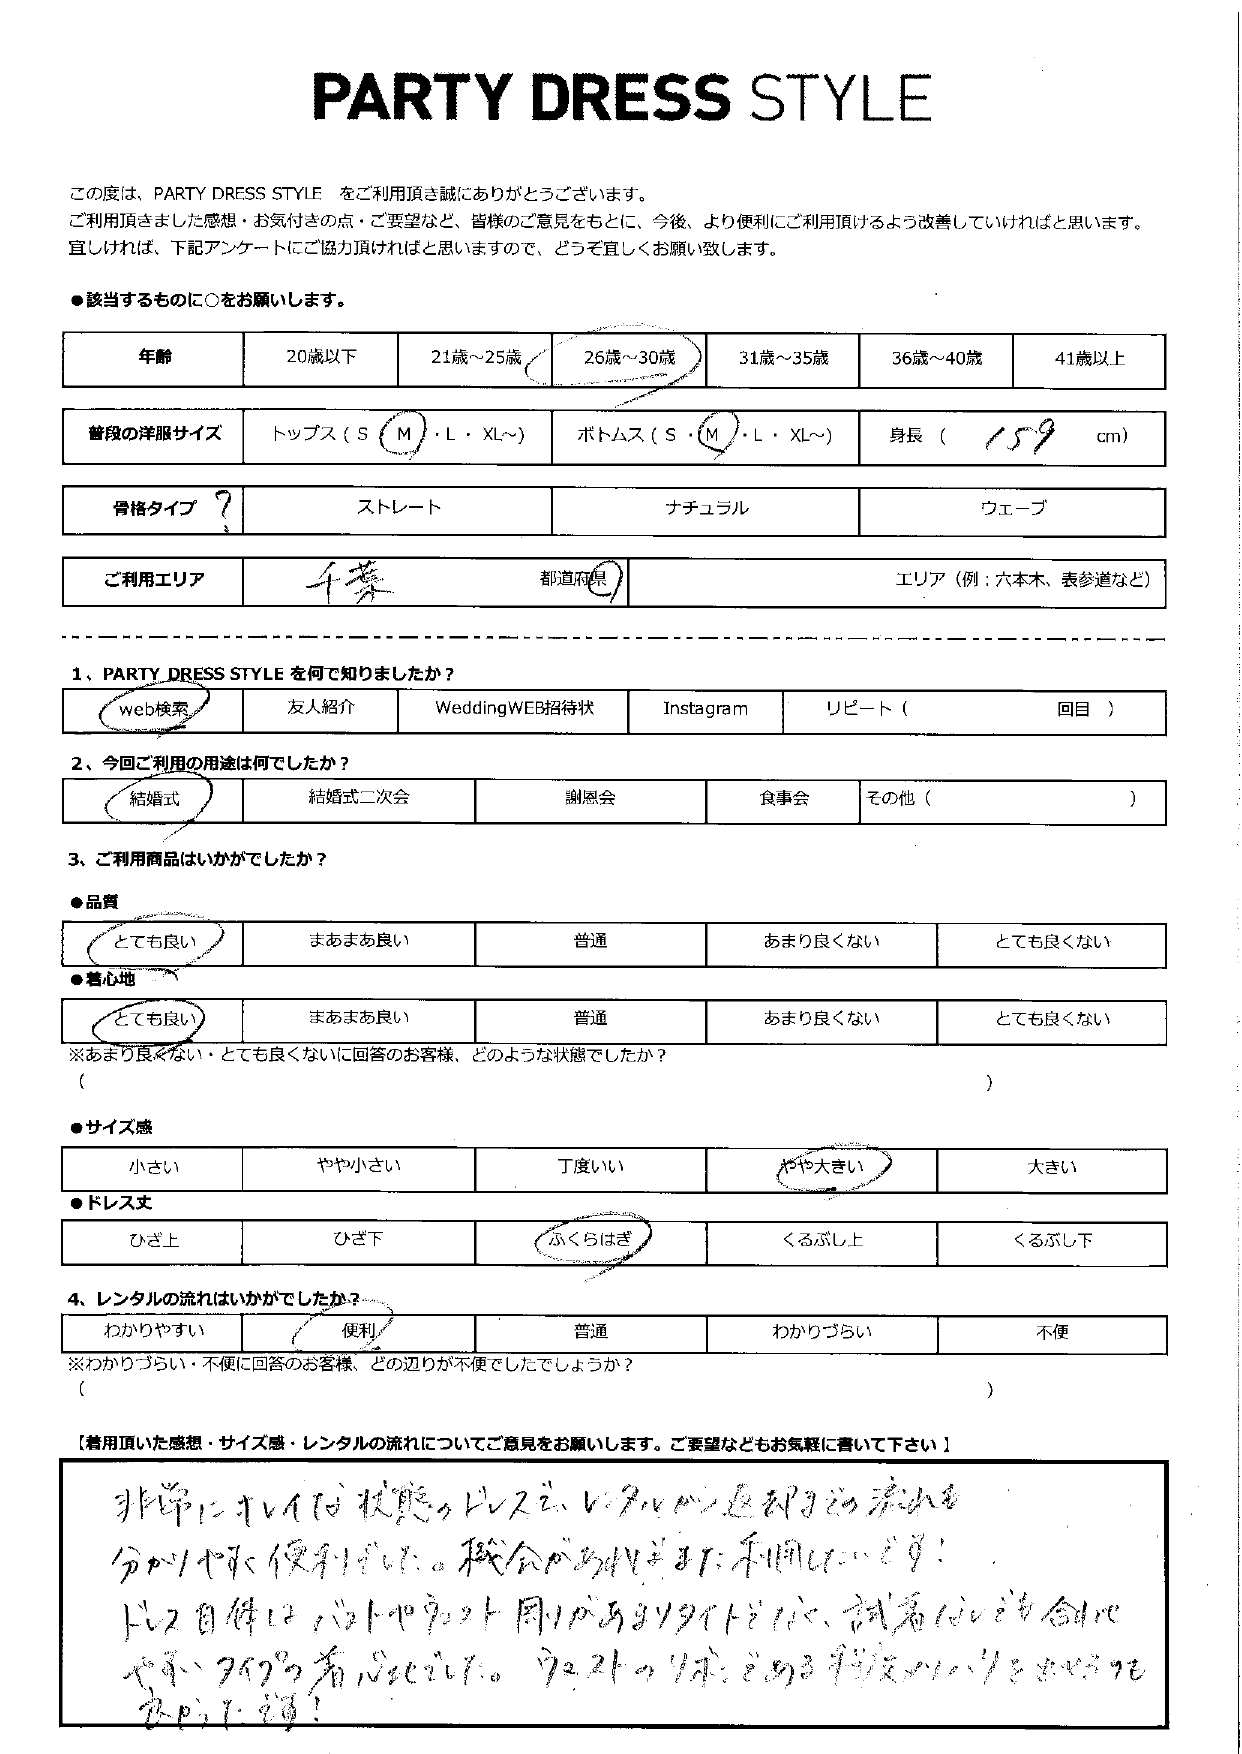 PARTY DRESS STYLE
この度は、PARTY DRESS STYLE をご利用頂き誠にありがとうございます。
ご利用頂きました感想・お気付きの点・ご要望など、皆様のご意見をもとに、今後、より便利にご利用頂けるよう改善していければと思います。
宜しければ、下記アンケートにご協力頂ければと思いますので、どうぞ宜しくお願い致します。
●該当するものに○をお願いします。
年齢 20歳以下 21歳～25歳 26歳～30歳 31歳～35歳 36歳～40歳 41歳以上
普段の洋服サイズ トップス ( S M ・L ・ XL～) ボトムス ( S ・M ・L ・ XL～) 身長 ( 159 cm)
骨格タイプ ? ストレート ナチュラル ウェーブ
ご利用エリア 千葉 都道府県 エリア（例：六本木、表参道など）
1、PARTY DRESS STYLE を何で知りましたか？
web検索 友人紹介 WeddingWEB招待状 Instagram リピート ( 回目 )
2、今回ご利用の用途は何でしたか？
結婚式 結婚式二次会 謝恩会 食事会 その他 ( )
3、ご利用商品はいかがでしたか？
●品質
とても良い まあまあ良い 普通 あまり良くない とても良くない
●着心地
とても良い まあまあ良い 普通 あまり良くない とても良くない
※あまり良くない・とても良くないに回答のお客様、どのような状態でしたか？
( )
●サイズ感
小さい やや小さい 丁度いい やや大きい 大きい
●ドレス丈
ひざ上 ひざ下 ふくらはぎ くるぶし上 くるぶし下
4、レンタルの流れはいかがでしたか？
わかりやすい 便利 普通 わかりづらい 不便
※わかりづらい・不便に回答のお客様、どの辺りが不便でしたでしょうか？
( )
【着用頂いた感想・サイズ感・レンタルの流れについてご意見をお願いします。ご要望などもお気軽に書いて下さい】
非常にキレイな状態のドレスで、レンタルから返却までの流れも
分かりやすく便利でした。機会があればまた利用したいです！
ドレス自体はバストやウエスト周りがあまりタイトでなく、試着なしでも合わせ
やすいタイプの着心地でした。ウエストのリボンである程度メリハリを出せるのも
良かったです！